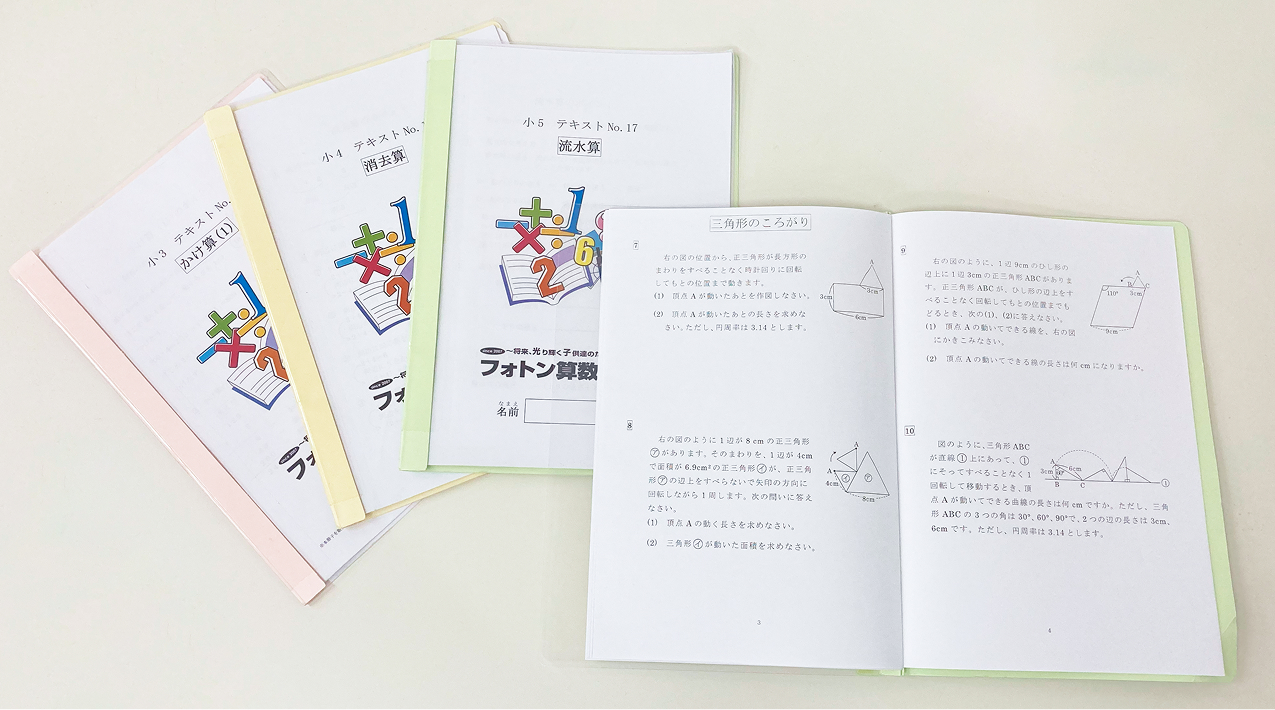 小3 テキストNo.
かけ算(1)
since 2007
フォ
小4 テキストNo.
消去算
since 2007
～将
フォ
小5 テキストNo.17
流水算
since 2007 ～将来、光り輝く子供達のた
フォトン算数
なまえ
名前
三角形のころがり
7
右の図の位置から、正三角形が長方形の
まわりをすべることなく時計回りに回転
してもとの位置まで動きます。
(1) 頂点Aが動いたあとを作図しなさい。
(2) 頂点Aが動いたあとの長さを求めな
さい。ただし、円周率は3.14とします。
A
3cm
3cm
6cm
8
右の図のように1辺が8cmの正三角形
㋐があります。そのまわりを、1辺が4cm
で面積が6.9cm²の正三角形㋑が、正三角
形㋐の辺上をすべらないで矢印の方向に
回転しながら1周します。次の問いに答え
なさい。
(1) 頂点Aの動く長さを求めなさい。
(2) 三角形㋑が動いた面積を求めなさい。
A
A
㋑
㋐
4cm
8cm
3
9
右の図のように、1辺9cmのひし形の
辺上に1辺3cmの正三角形ABCがありま
す。正三角形ABCが、ひし形の辺上をす
べることなく回転してもとの位置までも
どるとき、次の(1)、(2)に答えなさい。
(1) 頂点Aの動いてできる線を、右の図
にかきこみなさい。
(2) 頂点Aの動いてできる線の長さは何cmになりますか。
A
B
C
110°
3cm
9cm
10
図のように、三角形ABC
が直線①上にあって、①
にそってすべることなく1
回転して移動するとき、頂
点Aが動いてできる曲線の長さは何cmですか。ただし、三角
形ABCの3つの角は30°、60°、90°で、2つの辺の長さは3cm、
6cmです。ただし、円周率は3.14とします。
A
3cm
6cm
B
C
①
4